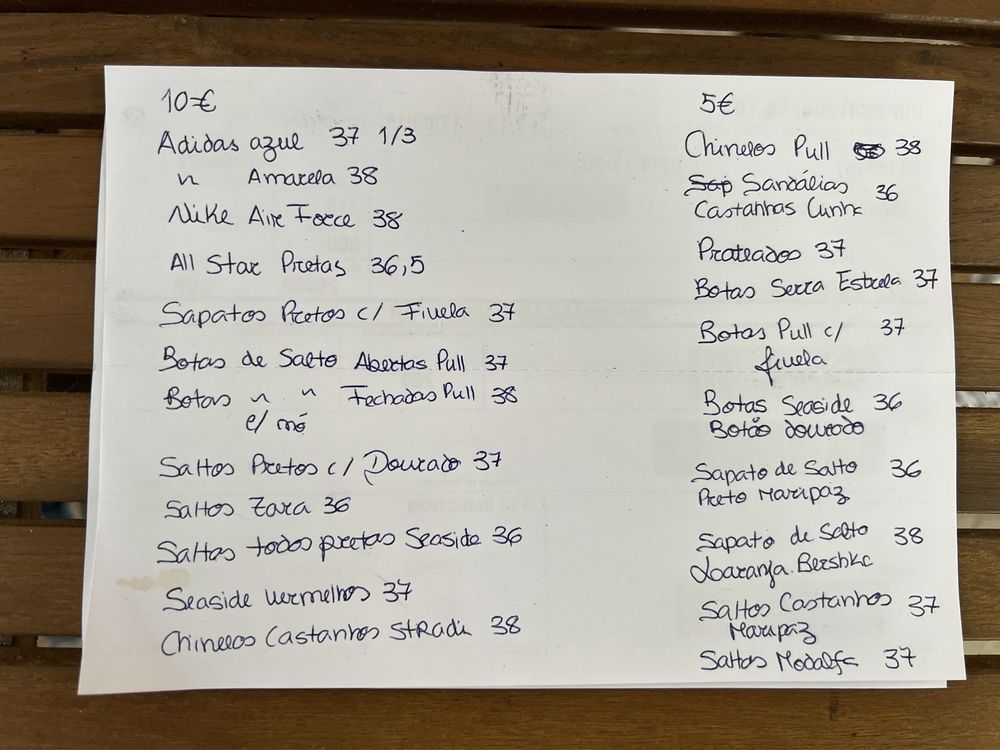 10€
Adidas azul 37 1/3
" Amarela 38
Nike Air Force 38
All Star Pretas 36,5
Sapatos Pretos c/ Fivela 37
Botas de Salto Abertas Pull 37
Botas " " Fechadas Pull 38
c/ nó
Saltos Pretos c/ Dourado 37
Saltos Zara 36
Saltos todos pretos Seaside 36
Seaside vermelhos 37
Chinelos Castanhos STRADI 38
5€
Chinelos Pull 38
Sap Sandálias 36
Castanhas Cunha
Prateados 37
Botas Serra Estrela 37
Botas Pull c/ 37
fivela
Botas Seaside 36
Botão dourado
Sapato de Salto 36
Preto Maripaz
Sapato de Salto 38
Laranja Bershka
Saltos Castanhos 37
Maripaz
Saltos Modalfa 37